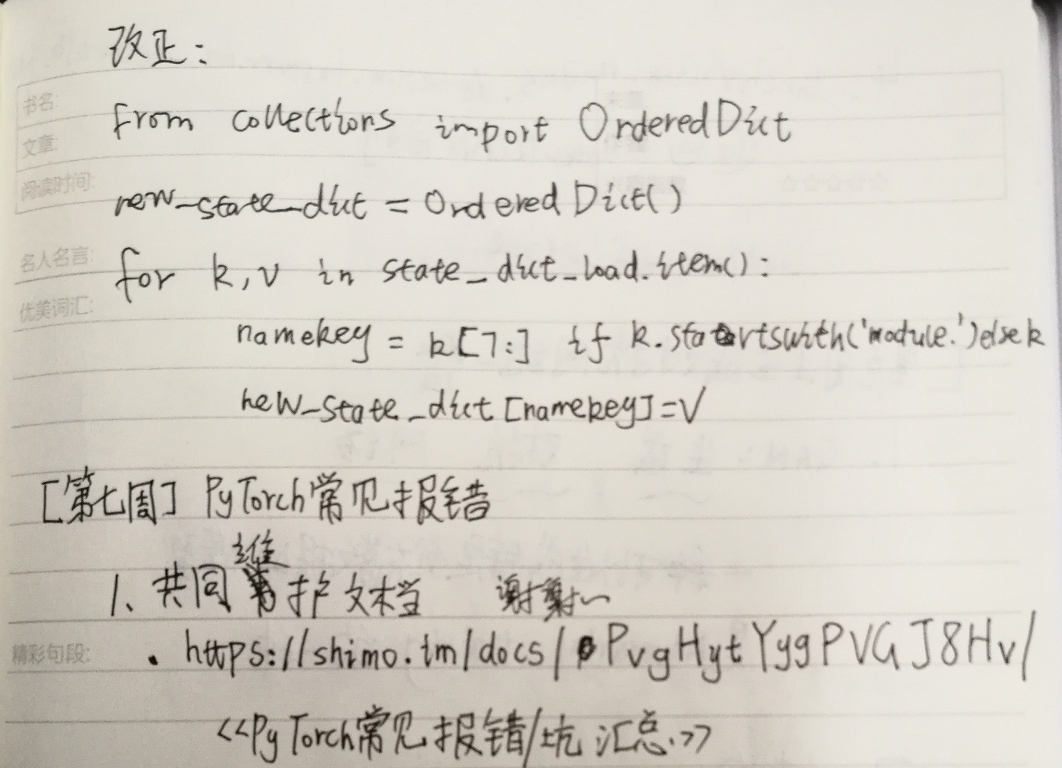 改正:
书名:
from collections import OrderedDict
文章:
阅读时间:
new_state_dict = OrderedDict()
名人名言:
for k,v in state_dict_load.item():
优美词汇:
namekey = k[7:] if k.startswith('module.')else k
new_state_dict[namekey]=v
[第七周] PyTorch常见报错
1、共同维护文档 谢谢~
精彩句段:
. https://shimo.im/docs/PvgHytYygPVGJ8Hv/
<<PyTorch常见报错/坑汇总>>